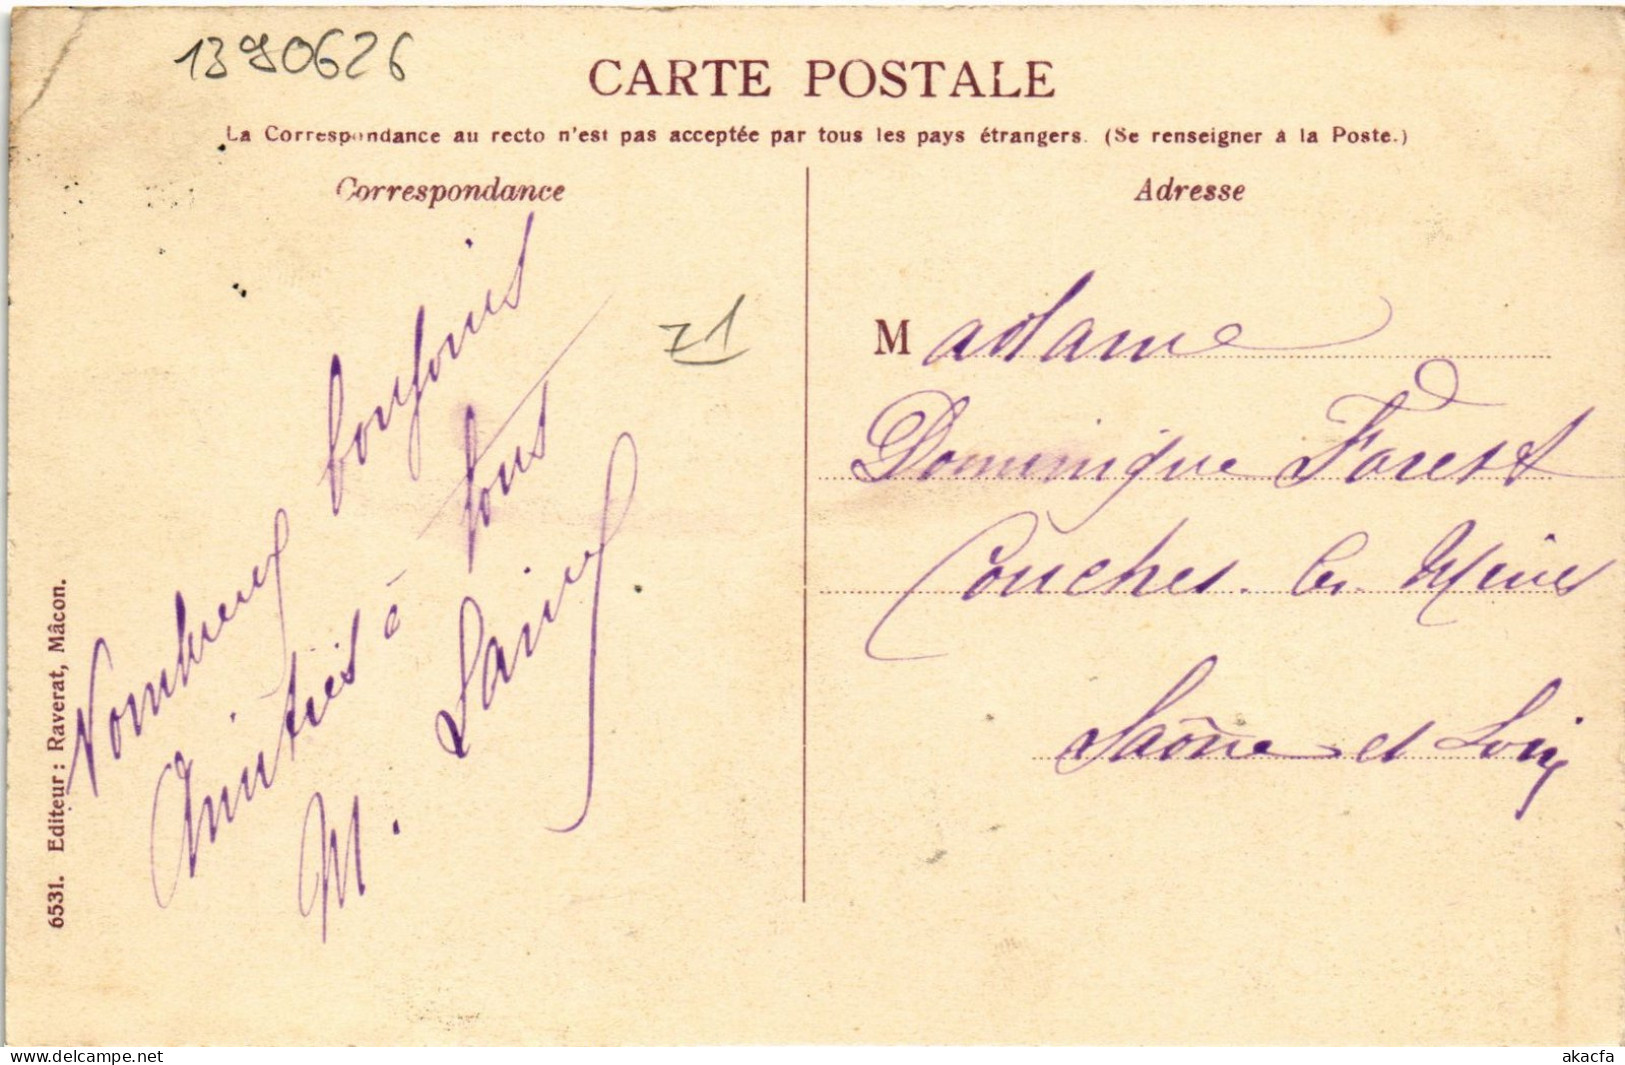 1390626
CARTE POSTALE
La Correspondance au recto n'est pas acceptée par tous les pays étrangers. (Se renseigner à la Poste.)
Correspondance
Nombreux bonjours
Amitiés à tous
M.
71
6531. Editeur : Raverat, Mâcon.
Adresse
Madame
Dominique Forest
Couches-les-Mines
Saône et Loire
www.delcampe.net
akacfa